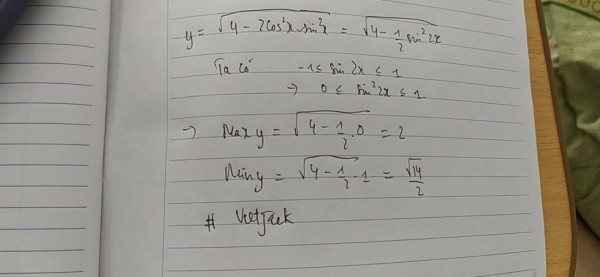 y = √(4 - 2cos²x.sin²x) = √(4 - 1/2 sin²2x)
Ta có -1 ≤ sin 2x ≤ 1
→ 0 ≤ sin²2x ≤ 1
→ Max y = √(4 - 1/2 . 0) = 2
Min y = √(4 - 1/2 . 1) = √14/2
# VietJack